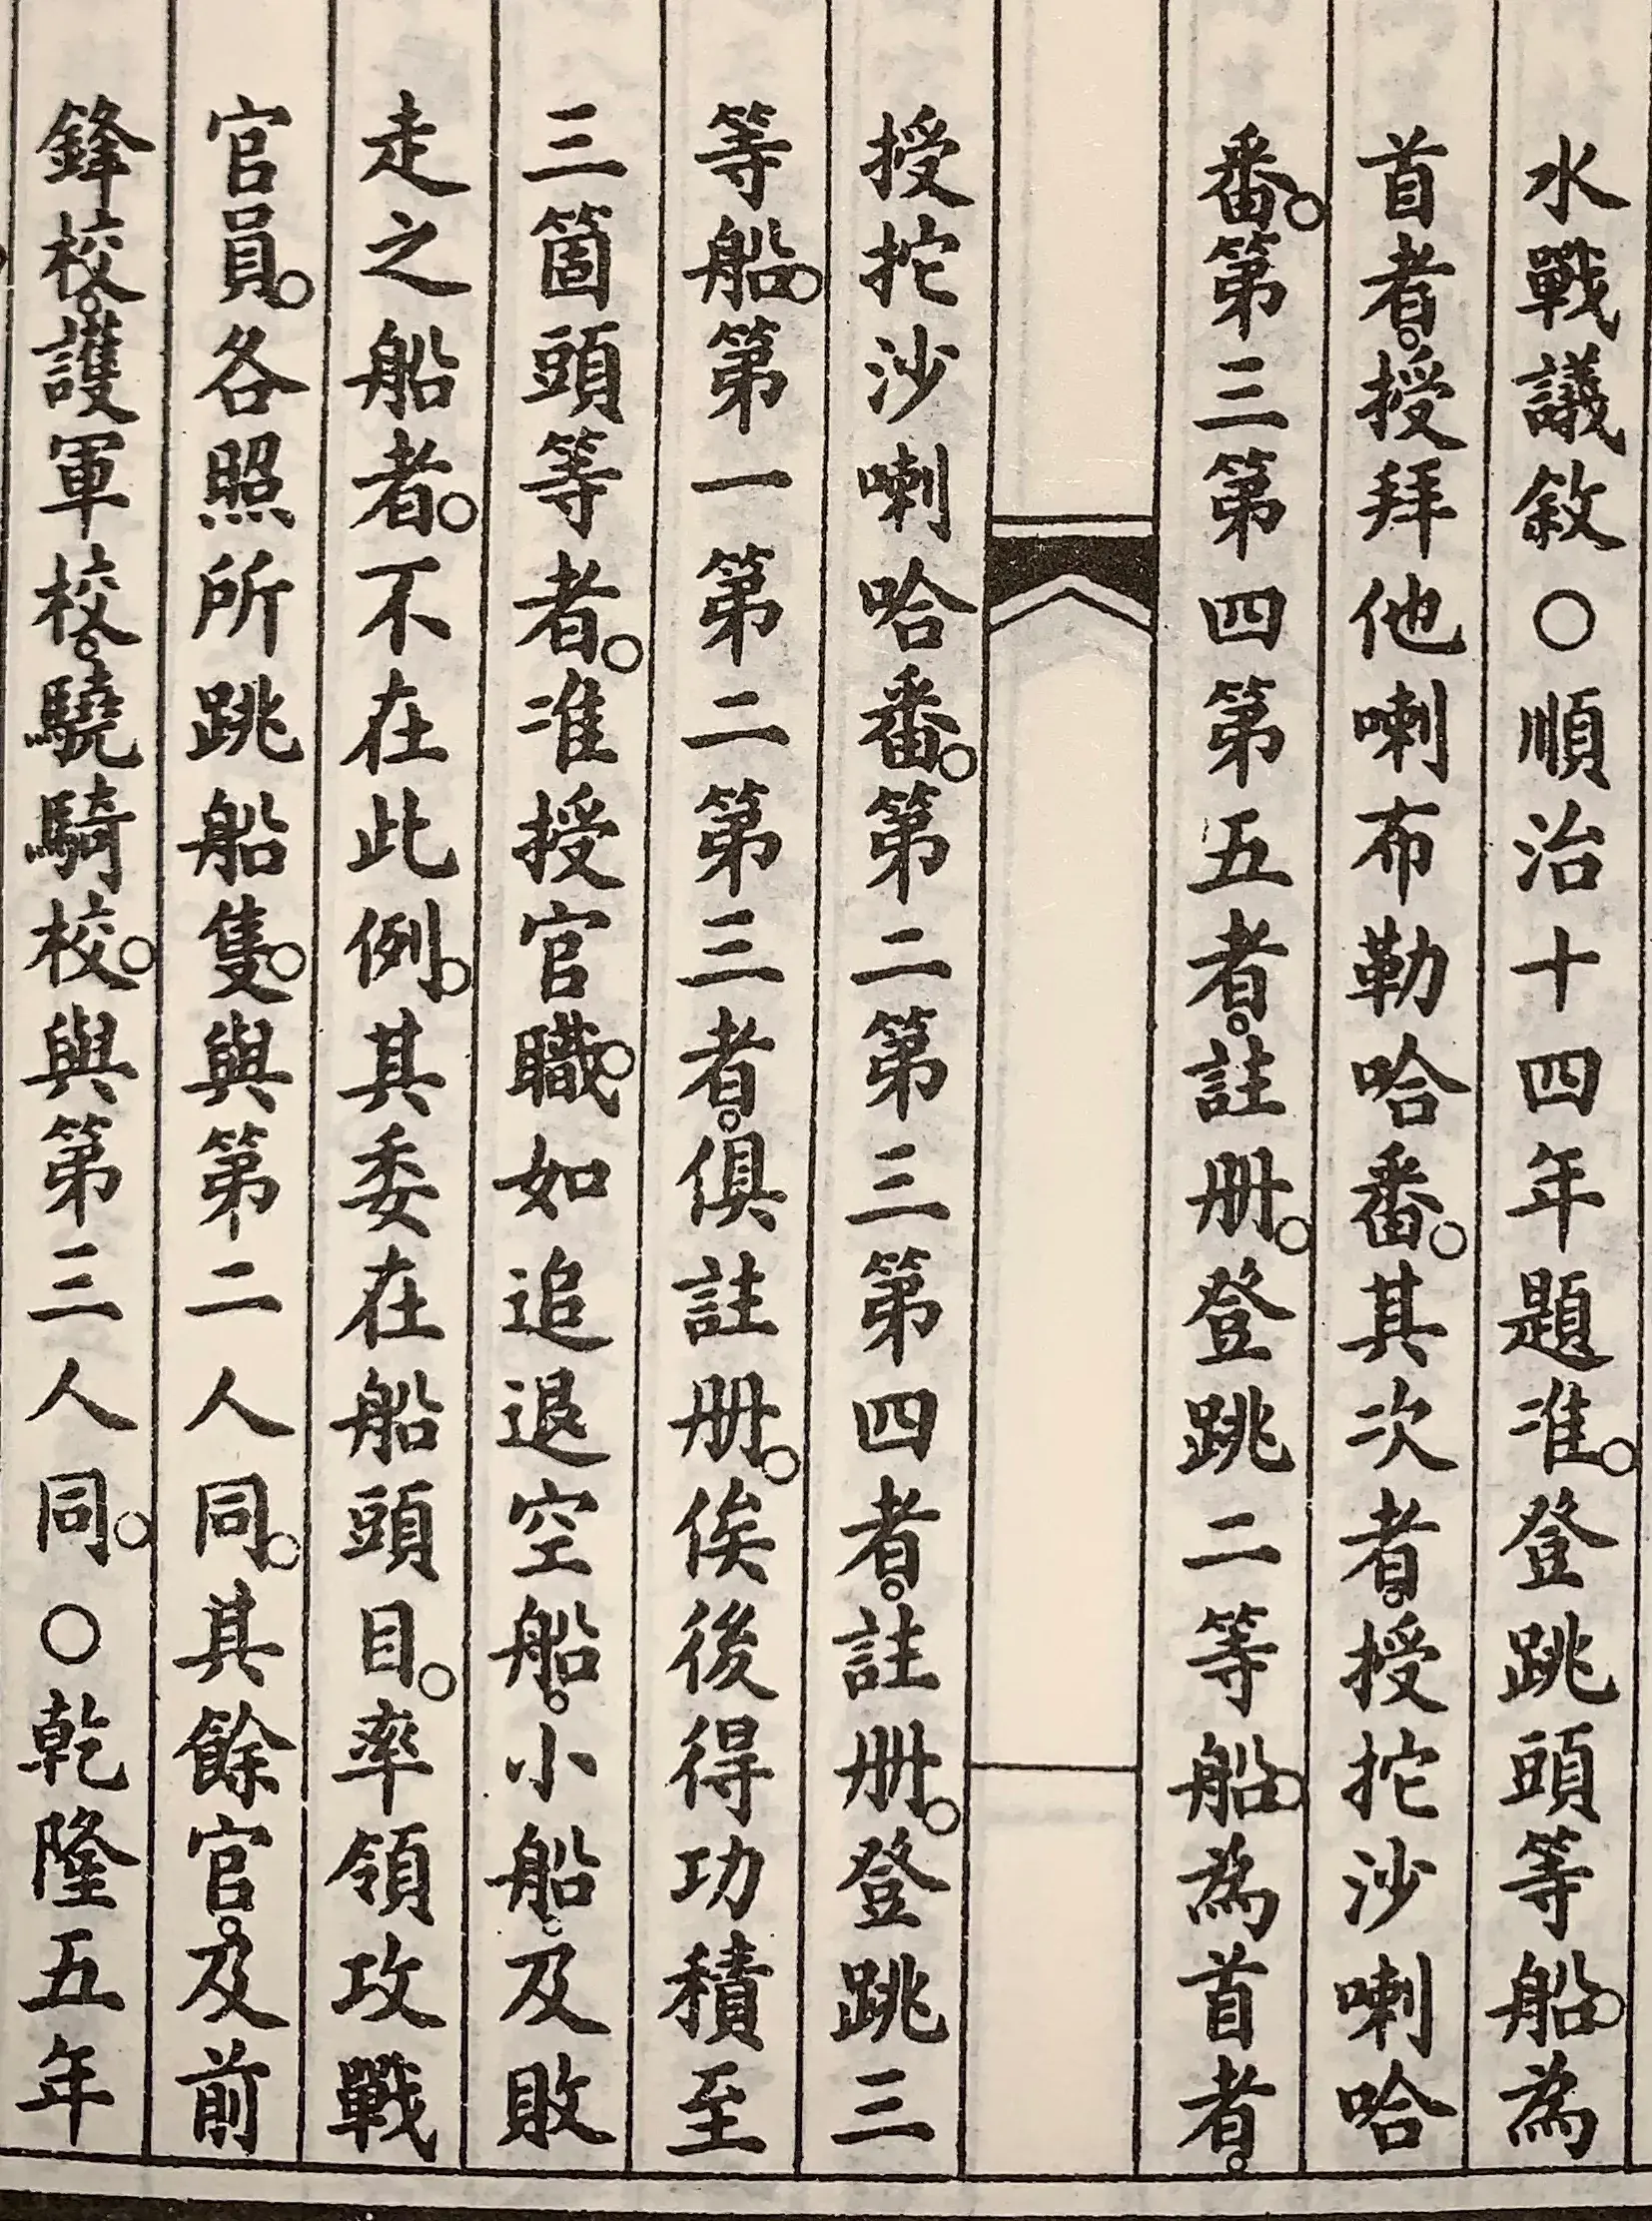 水戰議敘○順治十四年題准。登跳頭等船。為
首者。授拜他喇布勒哈番。其次者。授拕沙喇哈
番。第三第四第五者。註册。登跳二等船。為首者。
授拕沙喇哈番。第二第三第四者。註册。登跳三
等船。第一第二第三者。俱註册。俟後得功積至
三箇頭等者。准授官職。如追退空船。小船。及敗
走之船者。不在此例。其委在船頭目。率領攻戰
官員。各照所跳船隻。與第二人同。其餘官。及前
鋒校。護軍校。驍騎校。與第三人同。○乾隆五年